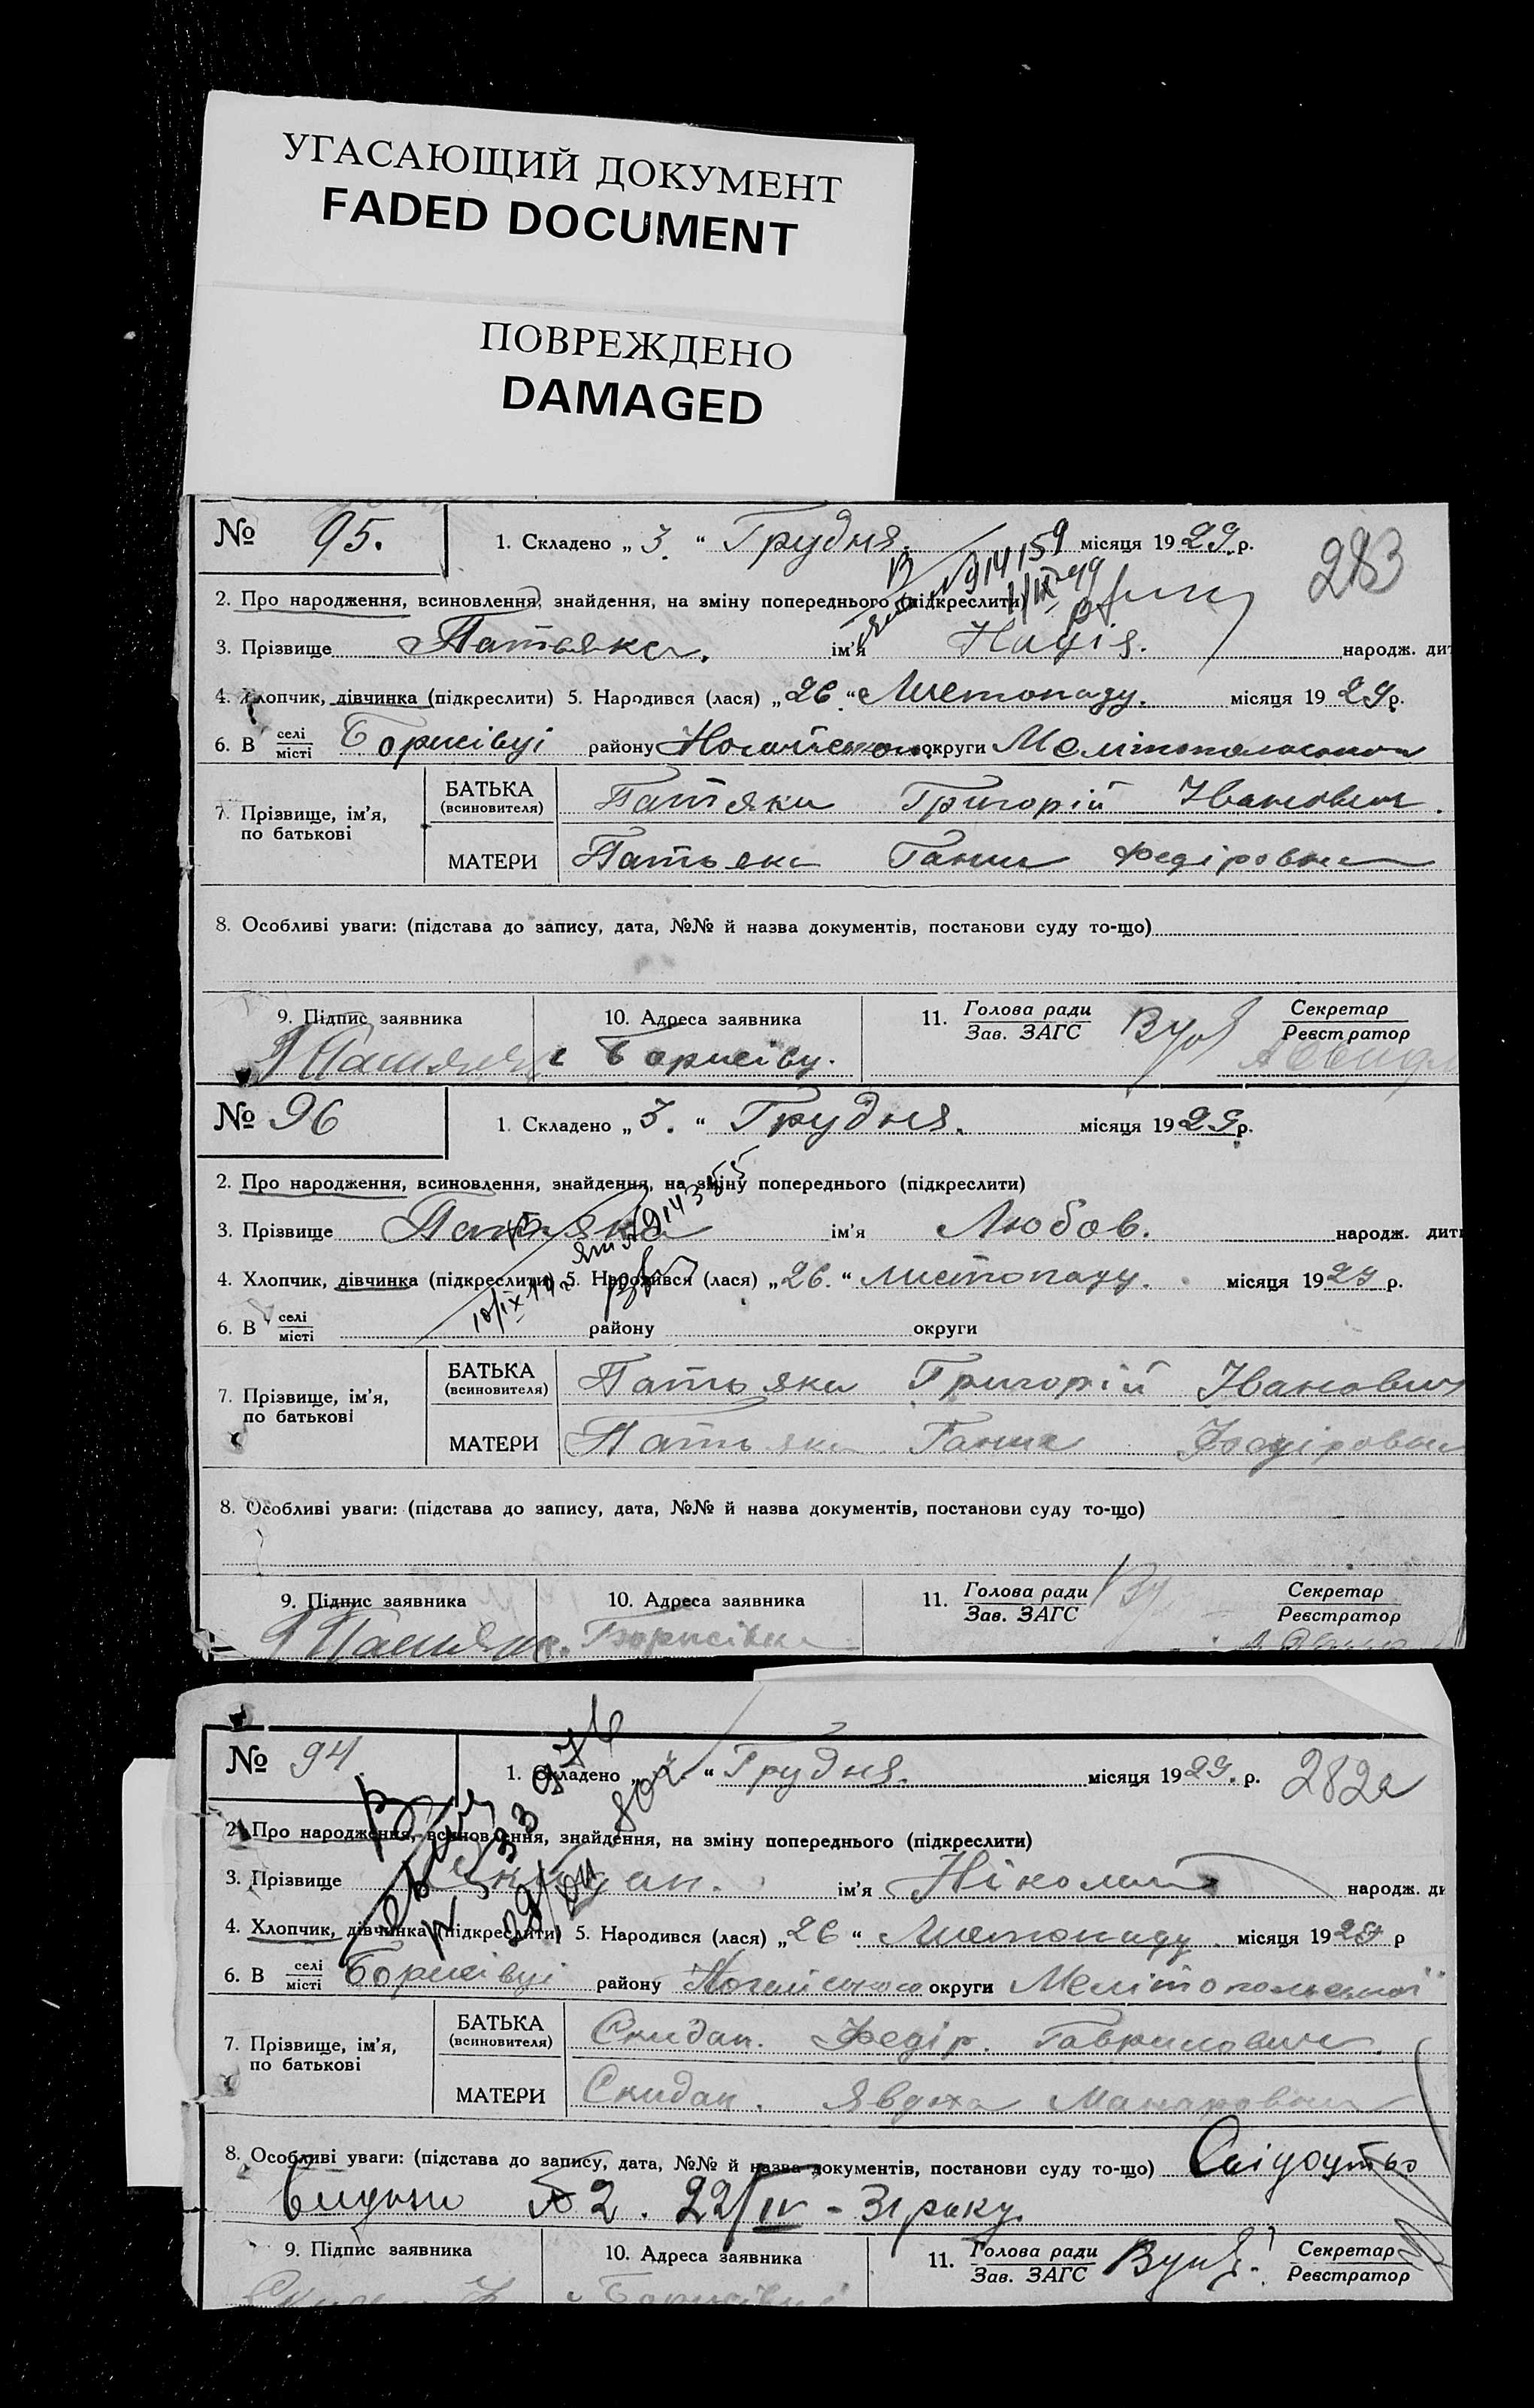 УГАСАЮЩИЙ ДОКУМЕНТ
FADED DOCUMENT
ПОВРЕЖДЕНО
DAMAGED
№ 95.
1. Складено „ 3. “ Грудня. місяця 1929. р.
283
2. Про народження, всиновлення, знайдення, на зміну попереднього (підкреслити)
3. Прізвище Патьяка. ім'я Надія. народж. дит
4. Хлопчик, дівчинка (підкреслити) 5. Народився (лася) „ 26. “ Листопаду. місяця 1929 р.
6. В селі/місті Борисівці району Ногайського округи Мелітопольської
7. Прізвище, ім'я, по батькові
БАТЬКА (всиновителя) Патяка Григорій Іванович.
МАТЕРИ Патьяка Ганна Федіровна
8. Особливі уваги: (підстава до запису, дата, №№ й назва документів, постанови суду то-що)
9. Підпис заявника
10. Адреса заявника
11. Голова ради/Зав. ЗАГС
Секретар/Реєстратор
с Борисівц.
№ 96
1. Складено „ 3. “ Грудня. місяця 1929 р.
2. Про народження, всиновлення, знайдення, на зміну попереднього (підкреслити)
3. Прізвище Патьяка ім'я Любов. народж. дит
4. Хлопчик, дівчинка (підкреслити) 5. Народився (лася) „ 26. “ листопаду. місяця 1929 р.
6. В селі/місті району округи
7. Прізвище, ім'я, по батькові
БАТЬКА (всиновителя) Патьяка Григорій Іванович
МАТЕРИ Патьяка Ганна Федіровна
8. Особливі уваги: (підстава до запису, дата, №№ й назва документів, постанови суду то-що)
9. Підпис заявника
10. Адреса заявника
11. Голова ради/Зав. ЗАГС
Секретар/Реєстратор
Борисівка
№ 94.
1. Складено „ “ Грудня. місяця 1929. р.
282а
2. Про народження, всиновлення, знайдення, на зміну попереднього (підкреслити)
3. Прізвище Скидан. ім'я Ніколай народж. ди
4. Хлопчик, дівчинка (підкреслити) 5. Народився (лася) „ 26 “ Листопаду місяця 1929 р
6. В селі/місті Борисівці району Ногайського округи Мелітопольської
7. Прізвище, ім'я, по батькові
БАТЬКА (всиновителя) Скидан. Федір. Гаврилович.
МАТЕРИ Скидан. Явдоха Макаровна
8. Особливі уваги: (підстава до запису, дата, №№ й назва документів, постанови суду то-що) Свідоцтво
видано № 2. 22/IV - 31 року.
9. Підпис заявника
10. Адреса заявника
11. Голова ради/Зав. ЗАГС
Секретар/Реєстратор